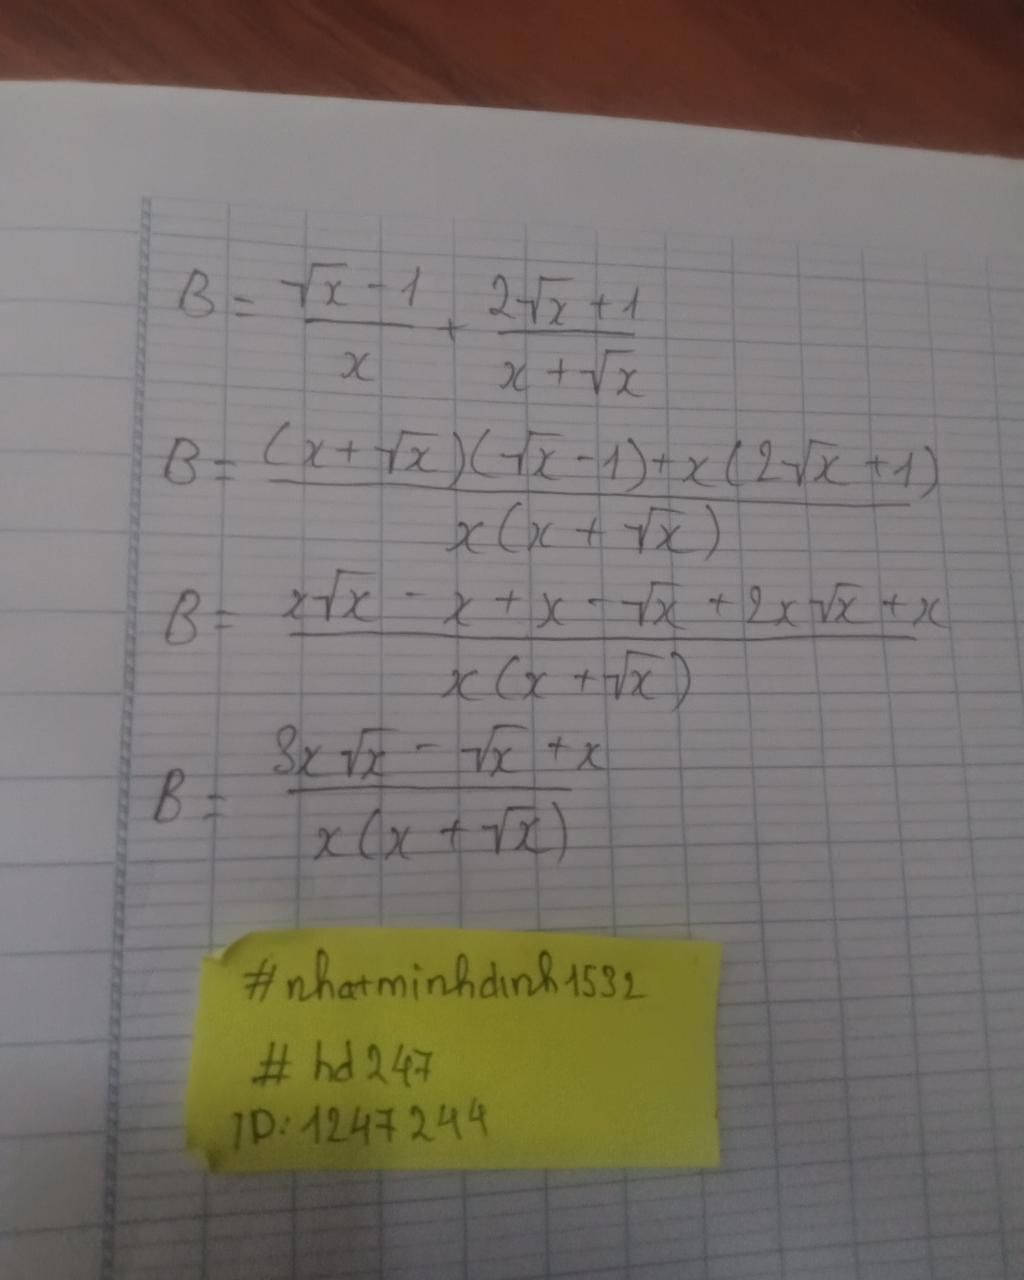 B = (√x - 1)/x + (2√x + 1)/(x + √x)
B = ((x + √x)(√x - 1) + x(2√x + 1))/(x(x + √x))
B = (x√x - x + x - √x + 2x√x + x)/(x(x + √x))
B = (3x√x - √x + x)/(x(x + √x))
#nhatminhdinh1532
# hd247
ID: 1247244